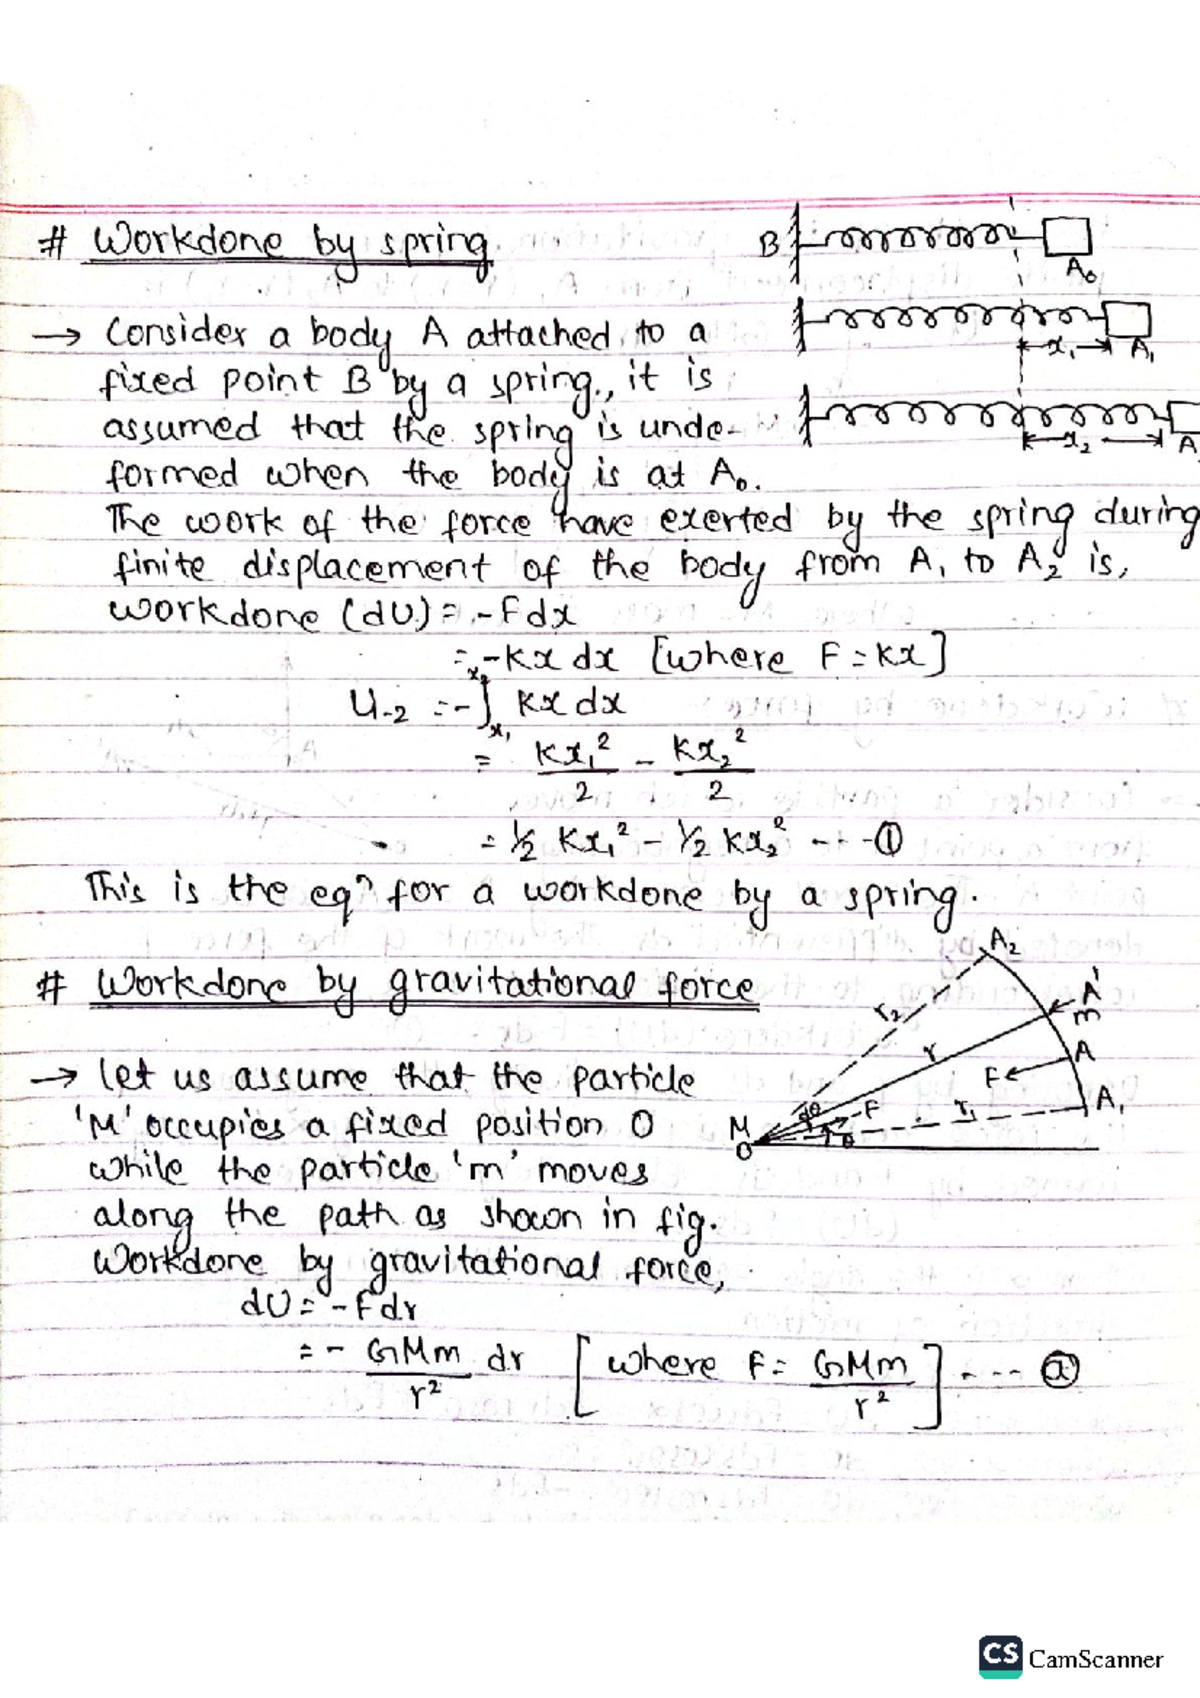 # Workdone by spring
B
A₀
→ Consider a body A attached to a
x₁ A₁
fixed point B by a spring., it is
assumed that the spring is unde-
x₂ A
formed when the body is at A₀.
The work of the force have exerted by the spring during
finite displacement of the body from A₁ to A₂ is,
workdone (dU) = -Fdx
= -Kx dx [where F = Kx]
U₁-₂ = -∫ₓ₁ˣ² Kx dx
= Kx₁²/2 - Kx₂²/2
= 1/2 Kx₁² - 1/2 Kx₂² --- ①
This is the eqⁿ for a workdone by a spring.
# Workdone by gravitational force
A₂
A'
m
r₂
r
A
F
→ Let us assume that the particle
dθ F r₁ A₁
'M' occupies a fixed position O
M
O
θ
while the particle 'm' moves
along the path as shown in fig.
Workdone by gravitational force,
dU = -Fdr
= - GMm/r² dr [where F = GMm/r²] ---- ⓐ
CS CamScanner